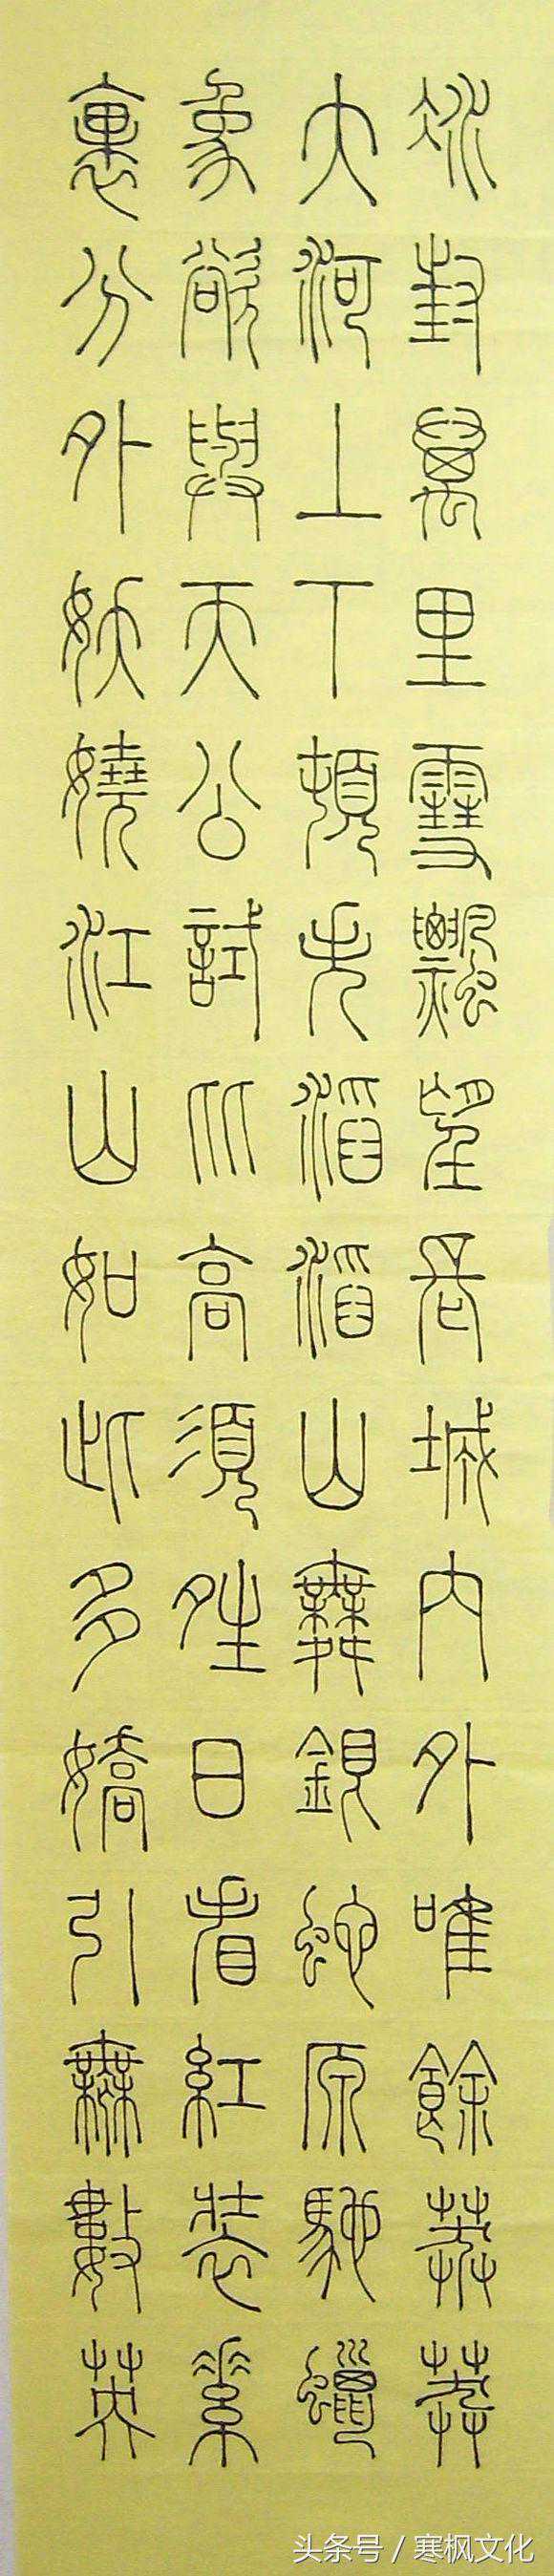 冰封萬里雪飄望長城內外唯餘莽莽
大河上下頓失滔滔山舞銀蛇原馳蠟
象欲與天公試比高須夝日看紅裝素
裹分外妖嬈江山如此多嬌引無數英
头条号 / 寒枫文化